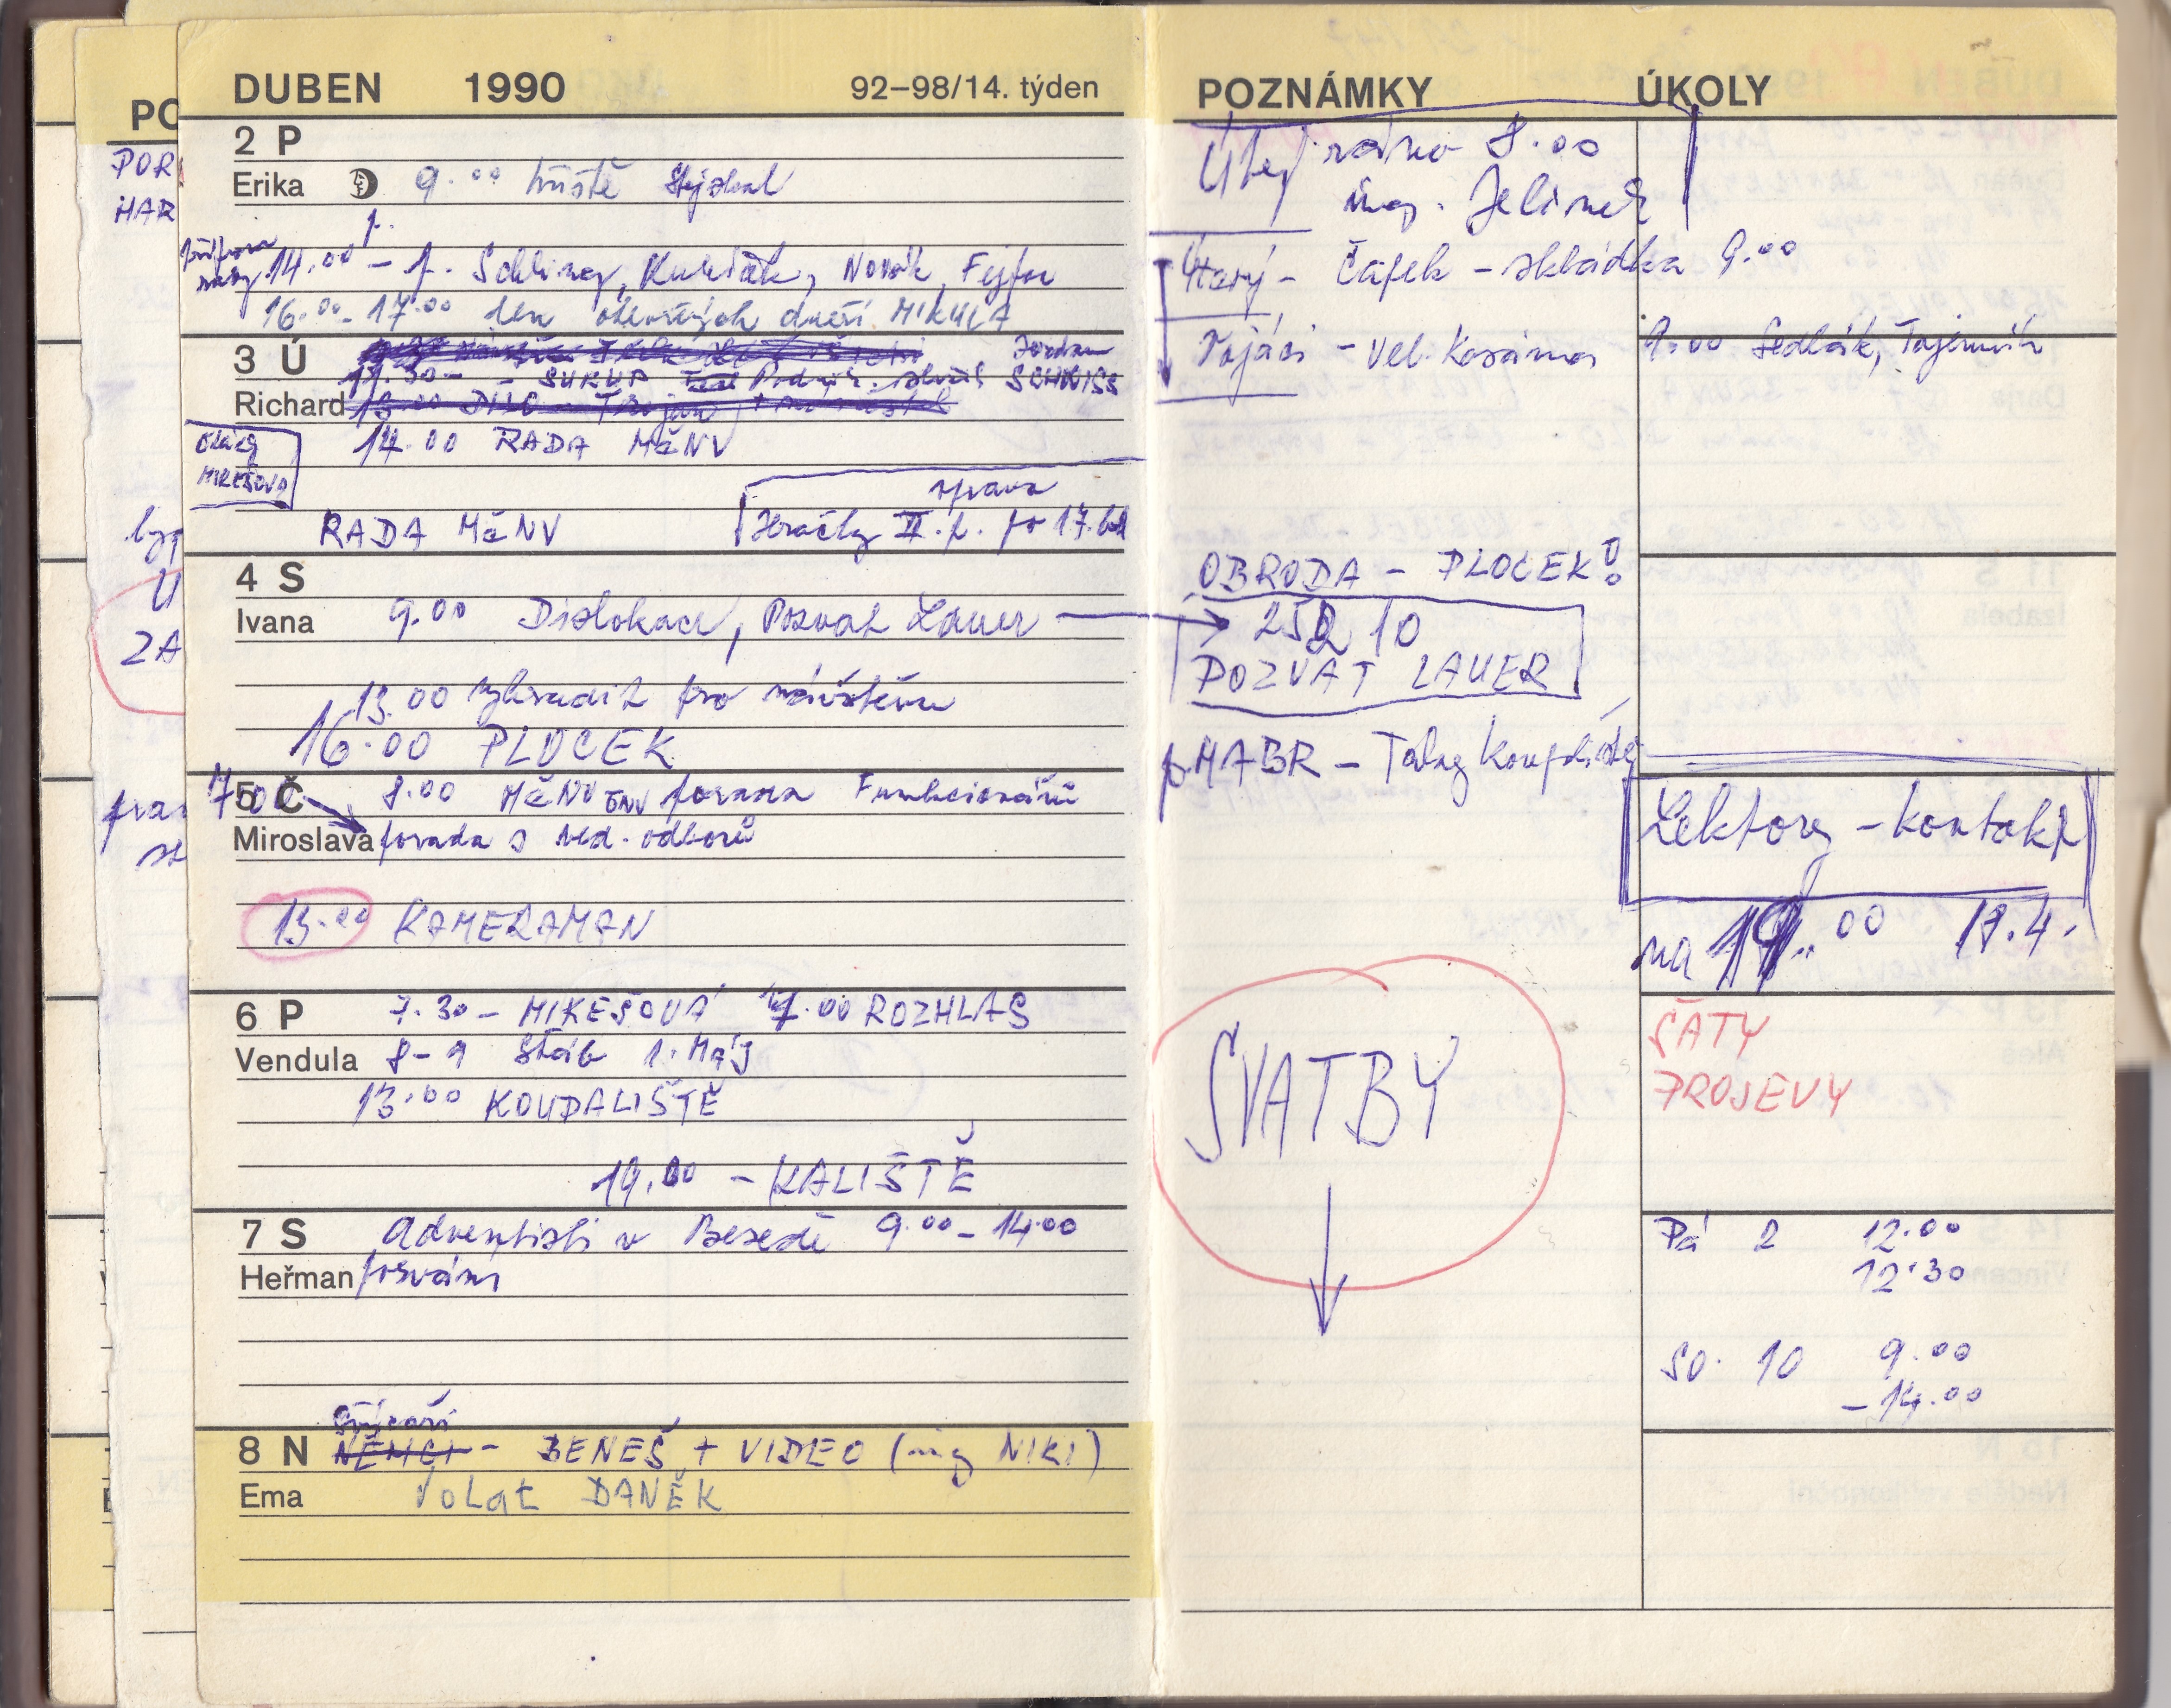 DUBEN 1990 92–98/14. týden
PO
POR
HAR
2 P
Erika 9.00
14.00 – p. Novák, Fejfar
16.00 – 17.00 den otevřených dveří MIKULA
3 Ú
Jordan
11.30 – SUKUP
Richard
14.00 RADA MěNV
MIKEŠOVÁ
zprava
RADA MěNV Hračky II. p. po 17. hod
4 S
Ivana 9.00 Dislokace, Pozvat Lauer
13.00 vyhradit pro návštěvu
16.00 PLOCEK
5 Č 8.00 MěNV ONV porada Funkcionářů
Miroslava porada s ved. odborů
13.00 KAMERAMAN
6 P 7.30 – MIKEŠOVÁ 17.00 ROZHLAS
Vendula 8–9 Štáb 1. Máj
13.00 KOUPALIŠTĚ
19.00 – KALIŠTĚ
7 S Adventisti v Besedě 9.00 – 14.00
Heřman pozvání
8 N NĚMCI – BENEŠ + VIDEO (ing NIKI)
Ema Volat DANĚK
U
ZA
POZNÁMKY ÚKOLY
Úterý ráno 8.00
ing. Jelinek
Čapek – skládka 9.00
Vojáci – Vel. Kasáren 9.00 Sedlák, Tajemník
OBRODA – PLOCEK!
252 10
POZVAT LAUER
p. HABR –
Lektory – kontakt
na 19.00 19.4.
SVATBY
ŠATY
PROJEVY
Pá 2 12.00
12.30
SO. 10 9.00
– 14.00